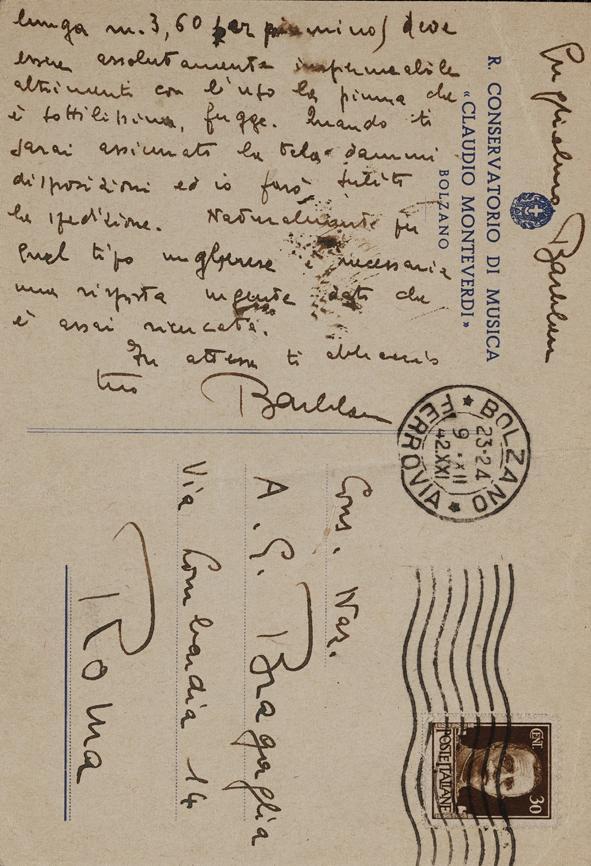 lunga m. 3,60 per piu o meno) deve
essere assolutamente impermeabile
altrimenti con l'uso la piuma che
è sottilissima, fugge. Quando ti
sarai assicurata la tela dammi
disposizioni ed io farò subito
la spedizione. Naturalmente per
quel tipo ungherese è necessaria
una risposta urgente dato che
è assai ricercata.
In attesa ti abbraccio
tuo Barblan
Guglielmo Barblan
R. CONSERVATORIO DI MUSICA
«CLAUDIO MONTEVERDI»
BOLZANO
BOLZANO
23-24
9 · XII
42.XXI
FERROVIA
CENT. 30
POSTE ITALIANE
Cons. Naz.
A. G. Bragaglia
Via Lombardia 14
Roma